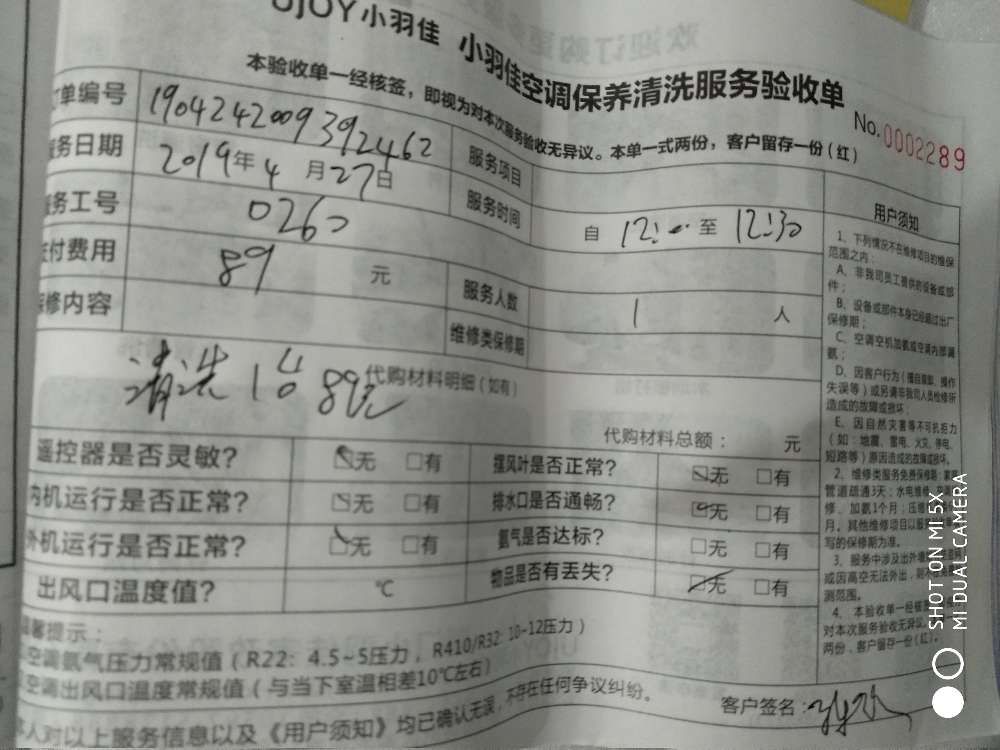 UJOY小羽佳 小羽佳空调保养清洗服务验收单
本验收单一经核签，即视为对本次服务验收无异议。本单一式两份，客户留存一份（红）
No.0002289
订单编号 1904242009392462 服务项目
服务日期 2019年4月27日 服务时间 自 12: 至 12:30
服务工号 0260
应付费用 89 元 服务人数 1 人
保修内容 维修类保修期
清洗1台 89元
代购材料明细（如有）
代购材料总额： 元
遥控器是否灵敏？ 无 有 摆风叶是否正常？ 无 有
内机运行是否正常？ 无 有 排水口是否通畅？ 无 有
外机运行是否正常？ 无 有 氨气是否达标？ 无 有
出风口温度值？ ℃ 物品是否有丢失？ 无 有
温馨提示：
空调氨气压力常规值（R22：4.5~5压力，R410/R32：10-12压力）
空调出风口温度常规值（与当下室温相差10℃左右）
本人对以上服务信息以及《用户须知》均已确认无误，不存在任何争议纠纷。
客户签名：
用户须知
1、下列情况不在维修项目的维保
范围之内：
A、非我司员工提供的设备或部
件；
B、设备或部件本身已经超过出厂
保修期；
C、空调空机加氨或空调内部漏
氨；
D、因客户行为（擅自拆卸、操作
失误等）或另请非我司人员检修所
造成的故障或损坏；
E、因自然灾害等不可抗拒力
（如：地震、雷电、火灾、停电、
短路等）原因造成的故障或损坏。
2、维修类服务免费保修期：家电
管道疏通3天；水电维修
修、加氨1个月；压缩
月。其他维修项目以服
写的保修期为准。
3、服务中涉及出外墙
或因高空无法外出，则
测范围。
4、本验收单一经核
对本次服务验收无异议
两份，客户留存一份（红）。
SHOT ON MI 5X
MI DUAL CAMERA